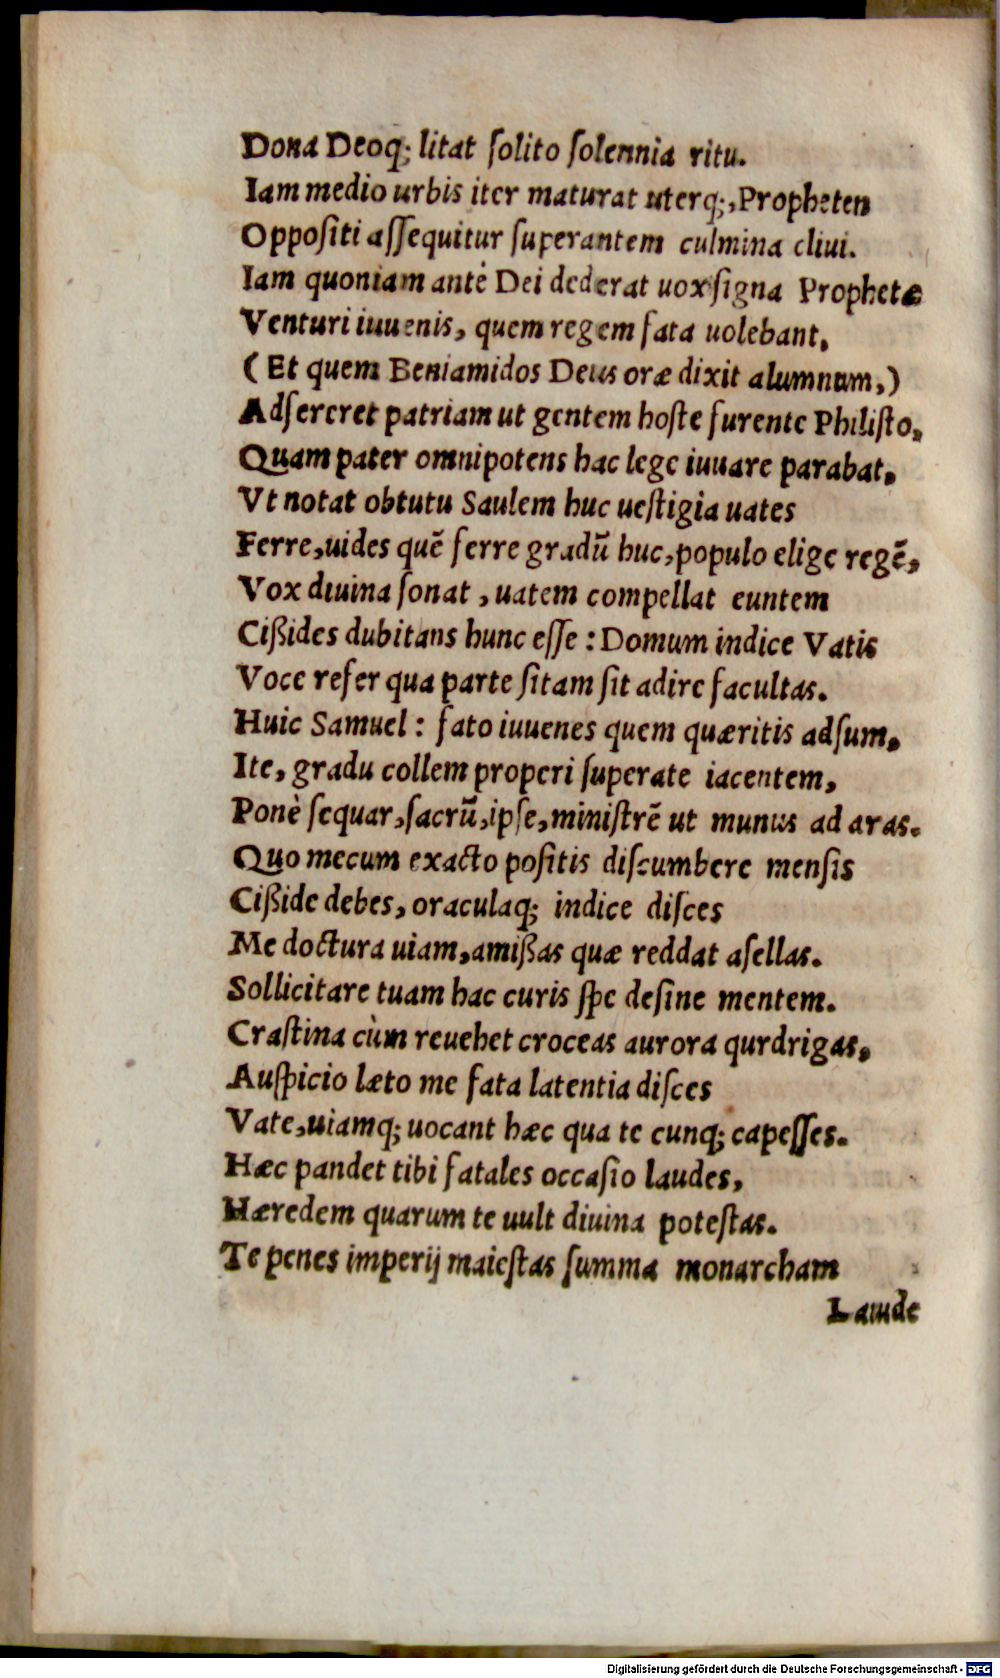 Dona Deoq; litat ſolito ſolennia ritu.
Iam medio urbis iter maturat uterq;, Propheten
Oppoſiti aſſequitur ſuperantem culmina cliui.
Iam quoniam antè Dei dederat uox ſigna Prophetæ
Venturi iuuenis, quem regem fata uolebant,
(Et quem Beniamidos Deus oræ dixit alumnum,)
Adſereret patriam ut gentem hoſte furente Philiſto,
Quam pater omnipotens hac lege iuuare parabat,
Vt notat obtutu Saulem huc ueſtigia uates
Ferre, uides quē ferre gradū huc, populo elige regē,
Vox diuina ſonat, uatem compellat euntem
Cißides dubitans hunc eſſe: Domum indice Vatis
Voce refer qua parte ſitam ſit adire facultas.
Huic Samuel: fato iuuenes quem quæritis adſum,
Ite, gradu collem properi ſuperate iacentem,
Ponè ſequar, ſacrū, ipſe, miniſtrē ut munus ad aras.
Quo mecum exacto poſitis diſcumbere menſis
Cißide debes, oraculaq; indice diſces
Me doctura uiam, amißas quæ reddat aſellas.
Sollicitare tuam hac curis ſpe deſine mentem.
Craſtina cùm reuehet croceas aurora qurdrigas,
Auſpicio læto me fata latentia diſces
Vate, uiamq; uocant hæc qua te cunq; capeſſes.
Hæc pandet tibi fatales occaſio laudes,
Hæredem quarum te uult diuina poteſtas.
Te penes imperij maieſtas ſumma monarcham
Laude
Digitalisierung gefördert durch die Deutsche Forschungsgemeinschaft - DFG